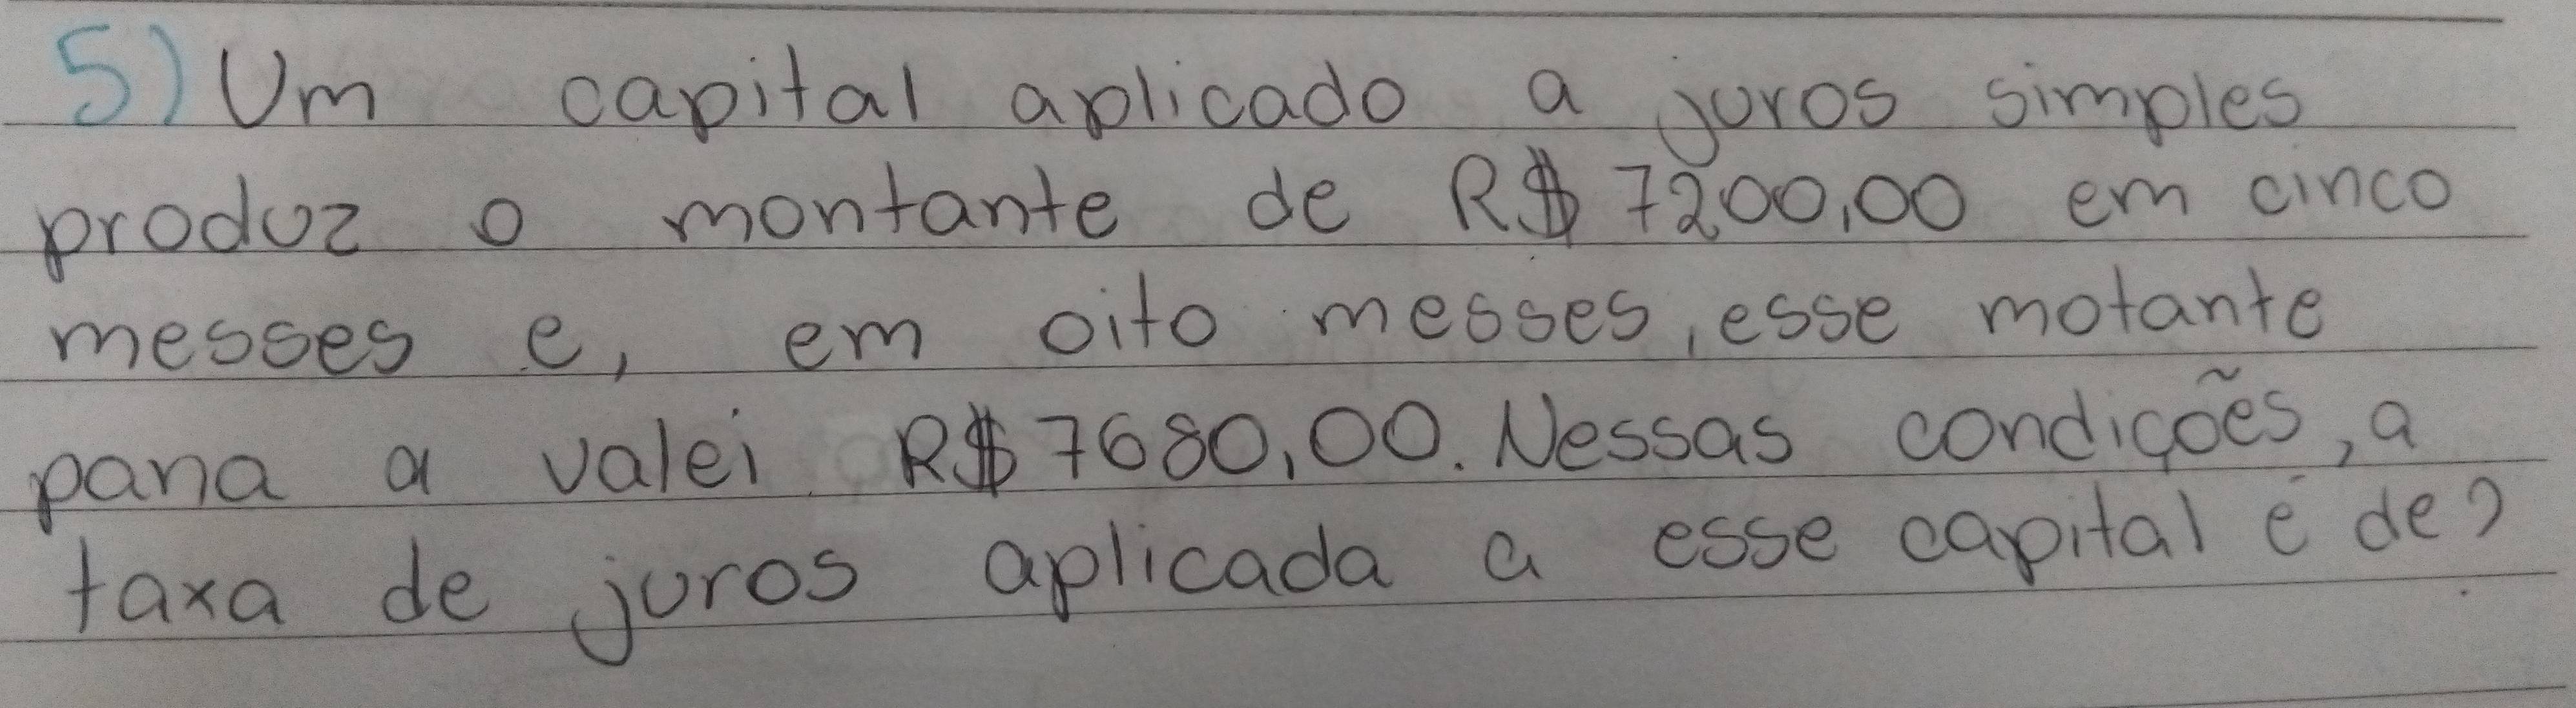 5) Um capital aplicado a juros simples
produz o montante de R$ 7200,00 em cinco
messes e, em oito messes, esse motante
pana a valei R$ 7680,00. Nessas condições, a
taxa de juros aplicada a esse capital é de?